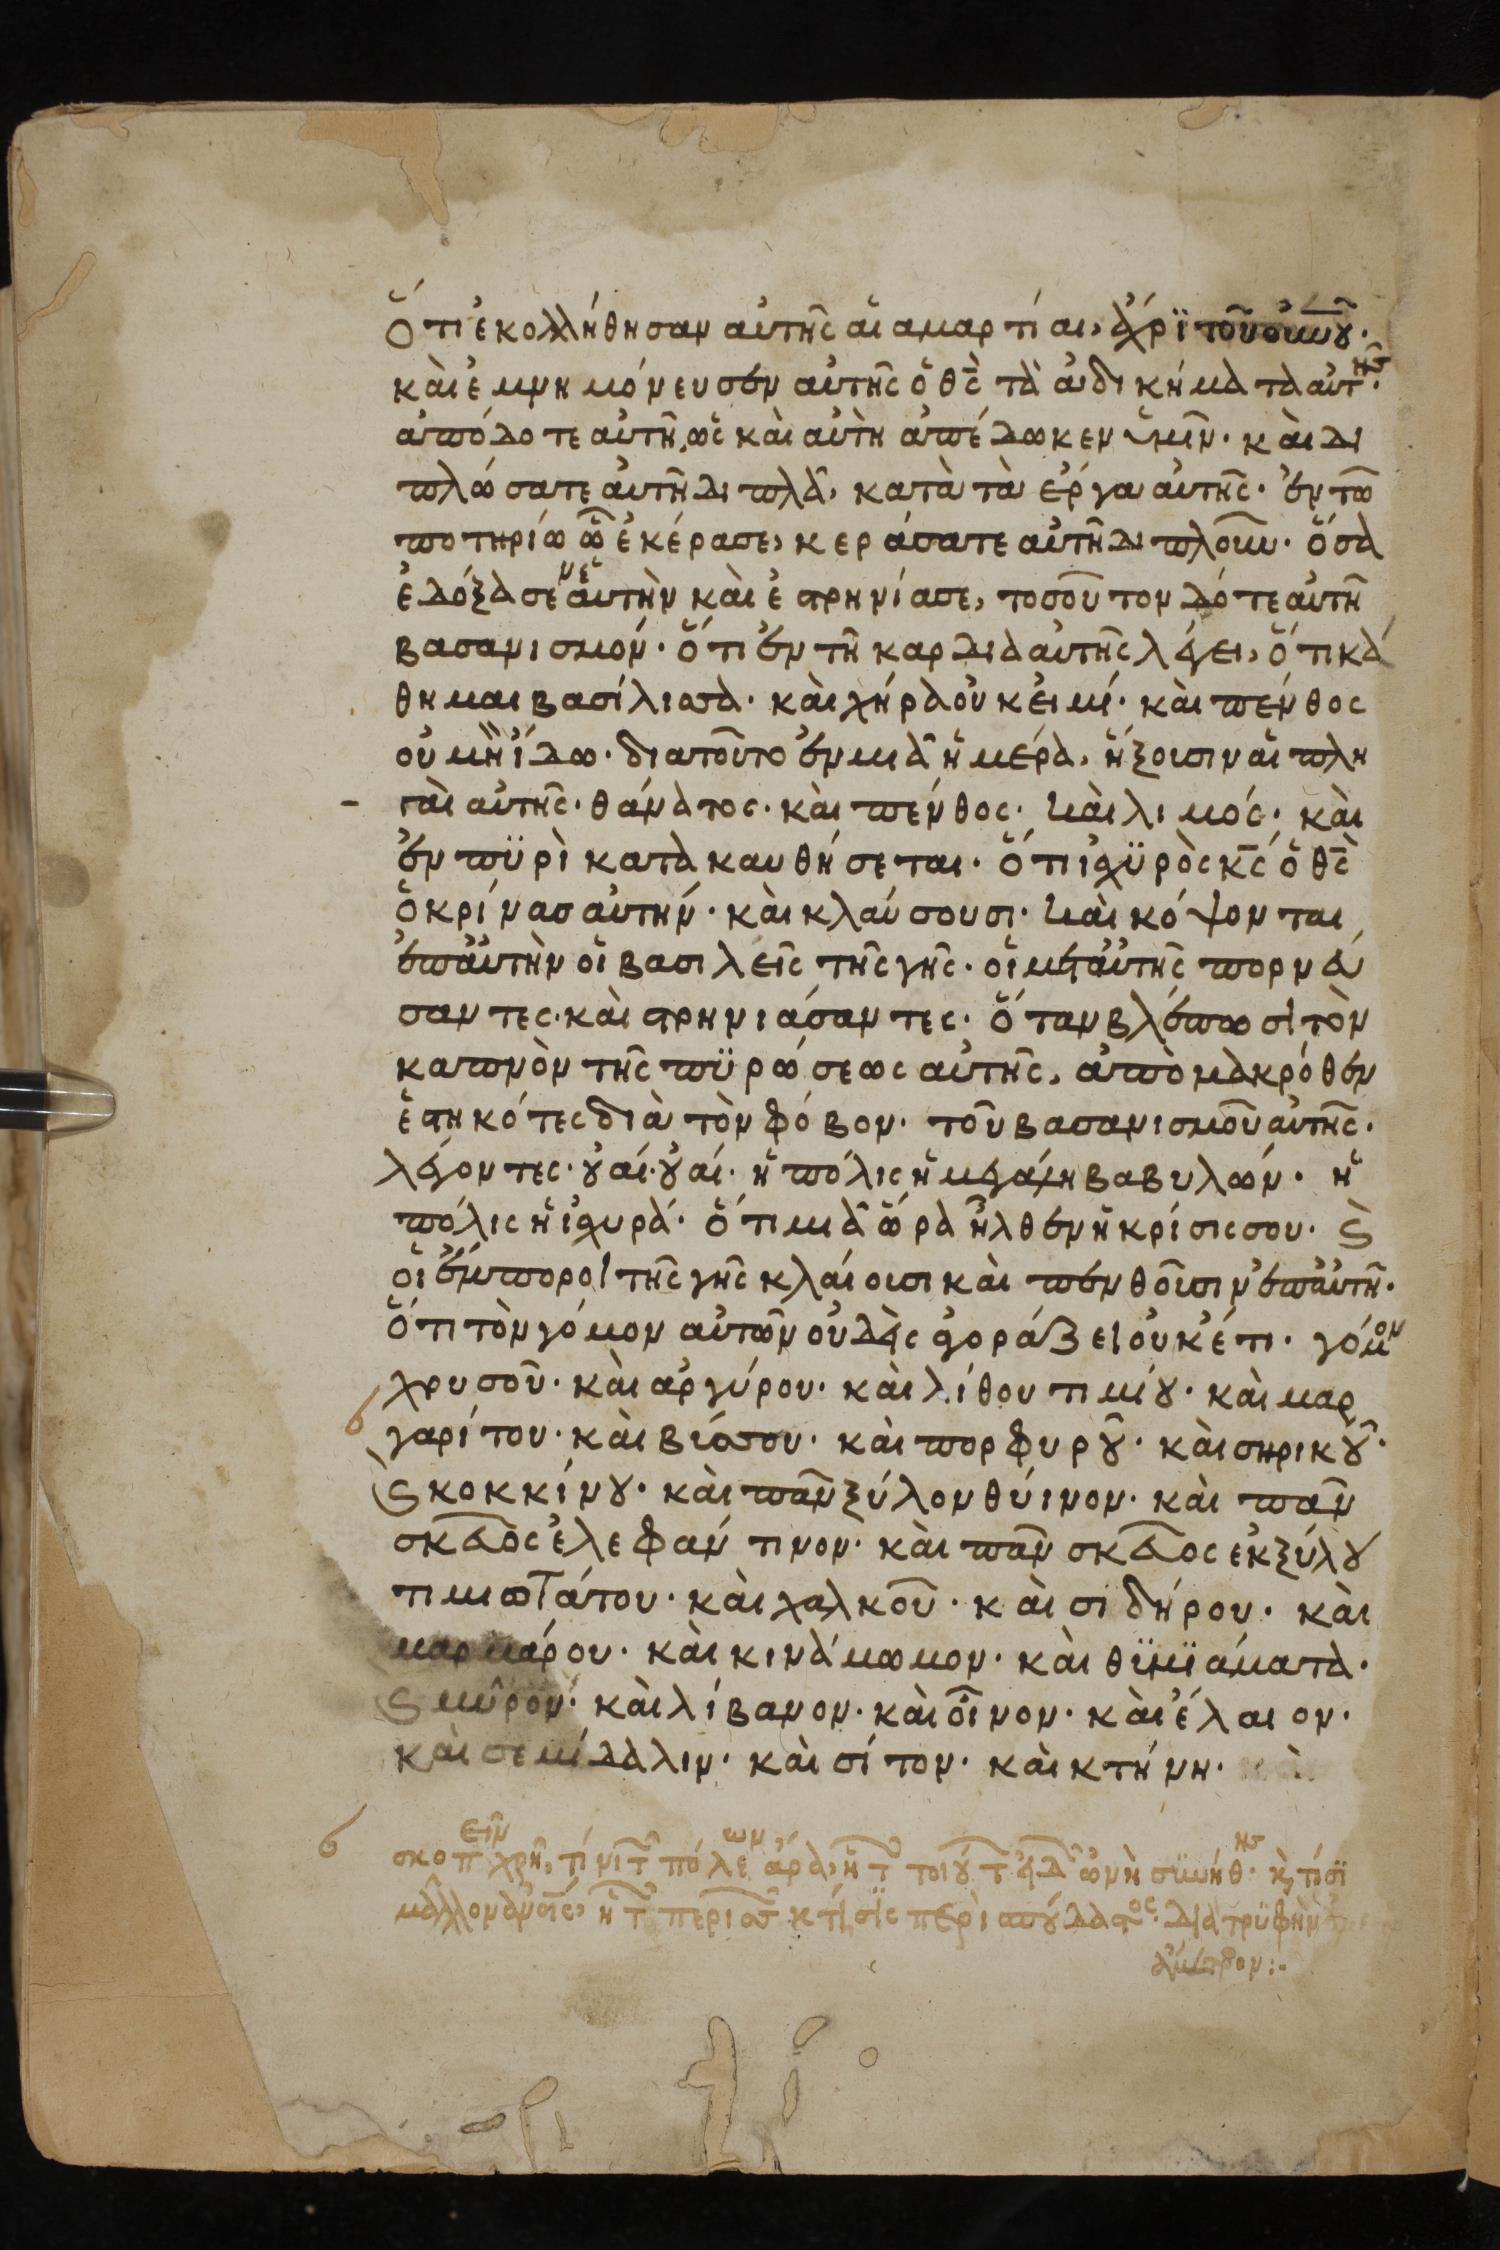 Ὅτι ἐκολλήθησαν αὐτῆς αἱ αμαρτίαι, ἄχρϊ τοῦ οὐνου.
καὶ ἐμνημόνευσεν αὐτῆς ὁ θς τὰ ἀδικήματα αὐτῆς.
ἀπόδοτε αὐτῆ, ὡς καὶ αὐτὴ ἀπέδωκεν ὑμῖν. καὶ δι
πλώσατε αὐτῆ διπλᾶ, κατὰ τὰ ἔργα αὐτῆς. ἐν τῶ
ποτηρίω ὧ ἐκέρασε, κεράσατε αὐτῆ διπλοῦν. ὅσα
ἐδόξασεν ἑαυτὴν καὶ ἐστρηνίασε, τοσοῦτον δότε αὐτῆ
βασανισμόν. ὅτι ἐν τῆ καρδία αὐτῆς λέγει, ὅτι κά
θημαι βασίλισσα. καὶ χήρα οὐκ εἰμί. καὶ πένθος
οὐ μὴ ἴδω. διατοῦτο ἐν μιᾶ ἡμέρα, ἥξουσιν αἱ πλη
γαὶ αὐτῆς. θάνατος. καὶ πένθος. καὶ λιμός. καὶ
ἐν πϋρὶ κατακαυθήσεται. ὅτι ἰσχϋρὸς κς ὁ θς
ὁ κρίνας αὐτήν. καὶ κλαύσουσι. καὶ κόψονται
ἐπαὐτὴν οἱ βασιλεῖς τῆς γῆς. οἱ μεταὐτῆς πορνεύ
σαντες. καὶ στρηνιάσαντες. ὅταν βλέπωσι τὸν
καπνὸν τῆς πϋρώσεως αὐτῆς, ἀπὸ μακρόθεν
ἑστηκότες διὰ τὸν φόβον. τοῦ βασανισμοῦ αὐτῆς.
λέγοντες. οὐαί. οὐαί. ἡ πόλις ἡ μεγάλη βαβυλών. ἡ
πόλις ἡ ἰσχυρά. ὅτι μιᾶ ὥρα ἦλθεν ἡ κρίσις σου. ϗ
οἱ ἔμποροι τῆς γῆς κλαίουσι καὶ πενθοῦσιν ἐπαὐτῆ.
ὅτι τὸν γόμον αὐτῶν οὐδεὶς ἀγοράζει οὐκέτι. γόμον
χρυσοῦ. καὶ ἀργύρου. καὶ λίθου τιμίου. καὶ μαρ
γαρίτου. καὶ βύσσου. καὶ πορφυροῦ. καὶ σηρικοῦ.
ϗ κοκκίνου. καὶ πᾶν ξύλον θύινον. καὶ πᾶν
σκεῦος ἐλεφάντινον. καὶ πᾶν σκεῦος ἐκ ξύλου
τιμιωτάτου. καὶ χαλκοῦ. καὶ σιδήρου. καὶ
μαρμάρου. καὶ κινάμωμον. καὶ θϋμϊάματα.
ϗ μῦρον. καὶ λίβανον. καὶ οἶνον. καὶ ἔλαιον.
καὶ σεμίδαλιν. καὶ σίτον. καὶ κτήνη.
σκοπεῖν χρὴ, τίνι τ πόλεων ἄρα, ἡ τ τοιούτ
μᾶλλον ἡ τ περιτ κτίσϊς περὶ σπούδαστος. διατρϋφὴν
ἄμετρον:.